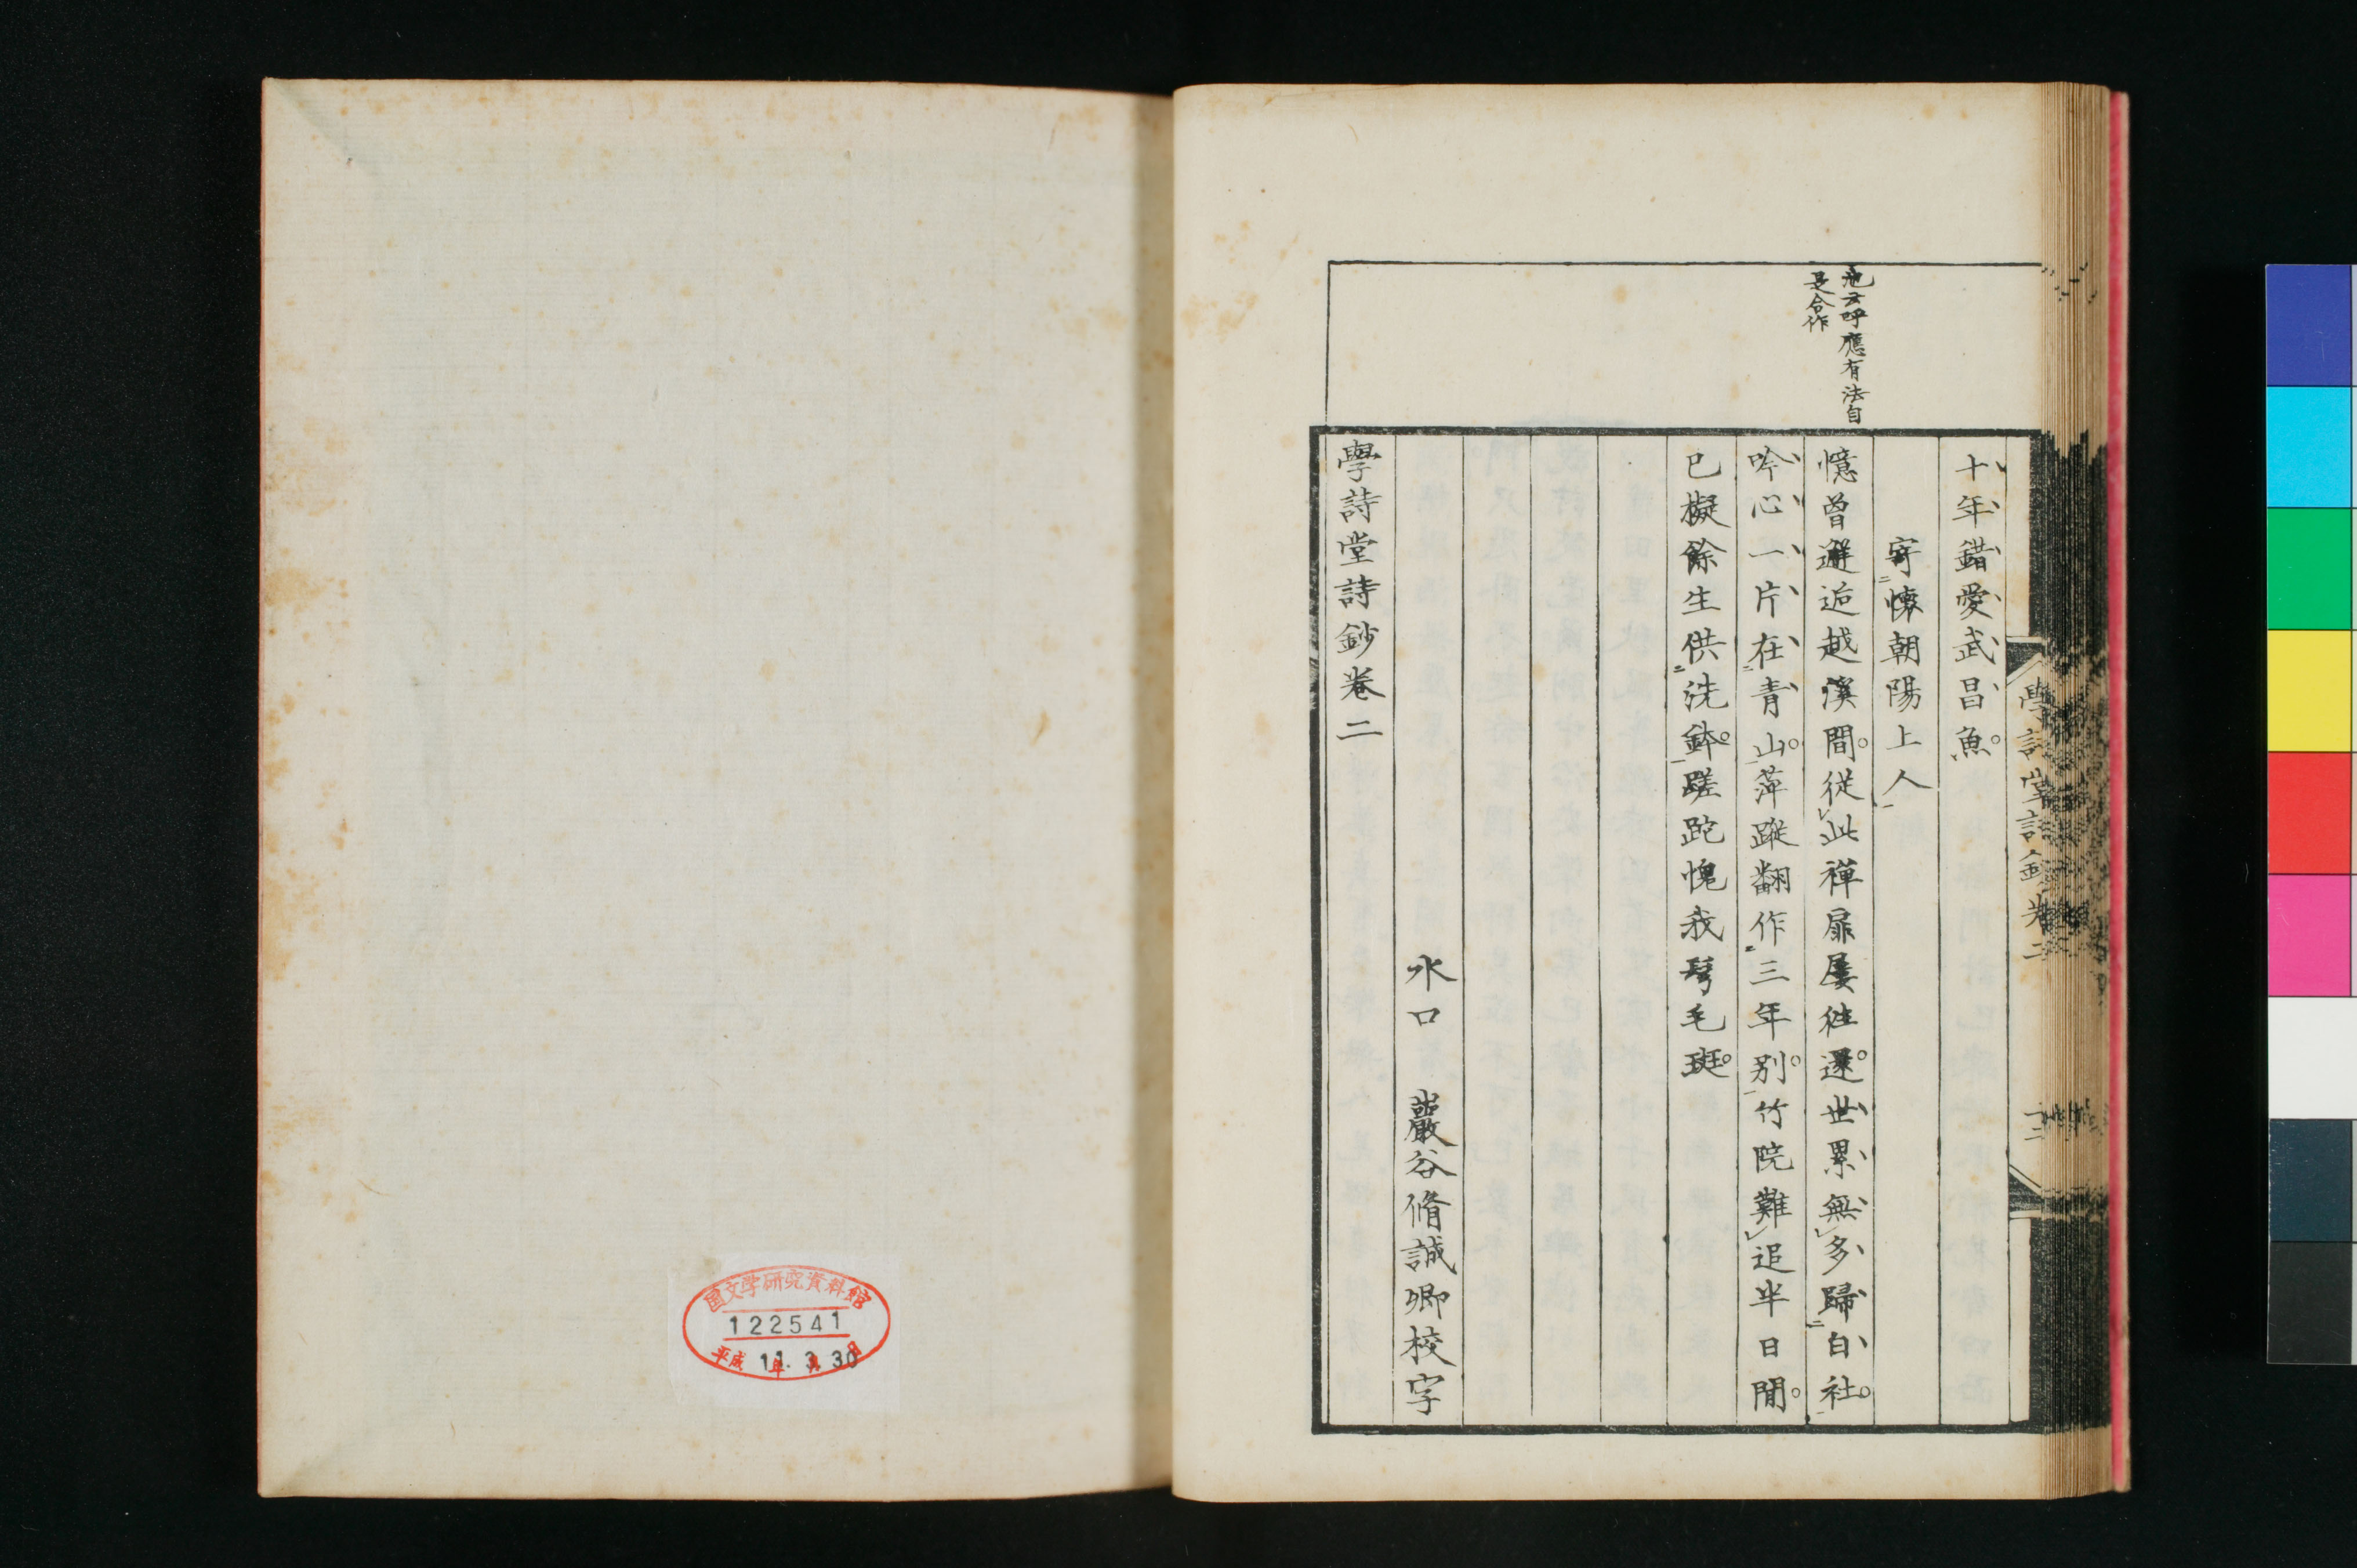 池云呼應有法自
是合作
十年錯愛武昌魚
寄懷朝陽上人
憶曾邂逅越溪間從此禪扉屡往還世累無多歸白社
吟心一片在青山萍蹤翻作三年別竹院難追半日間
已擬餘生供洗鉢蹉跎愧我鬂毛斑
水口 巖谷脩誠卿校字
學詩堂詩鈔卷二
學詩堂詩鈔卷二
国文学研究資料館
122541
平成 11年 3月 30日